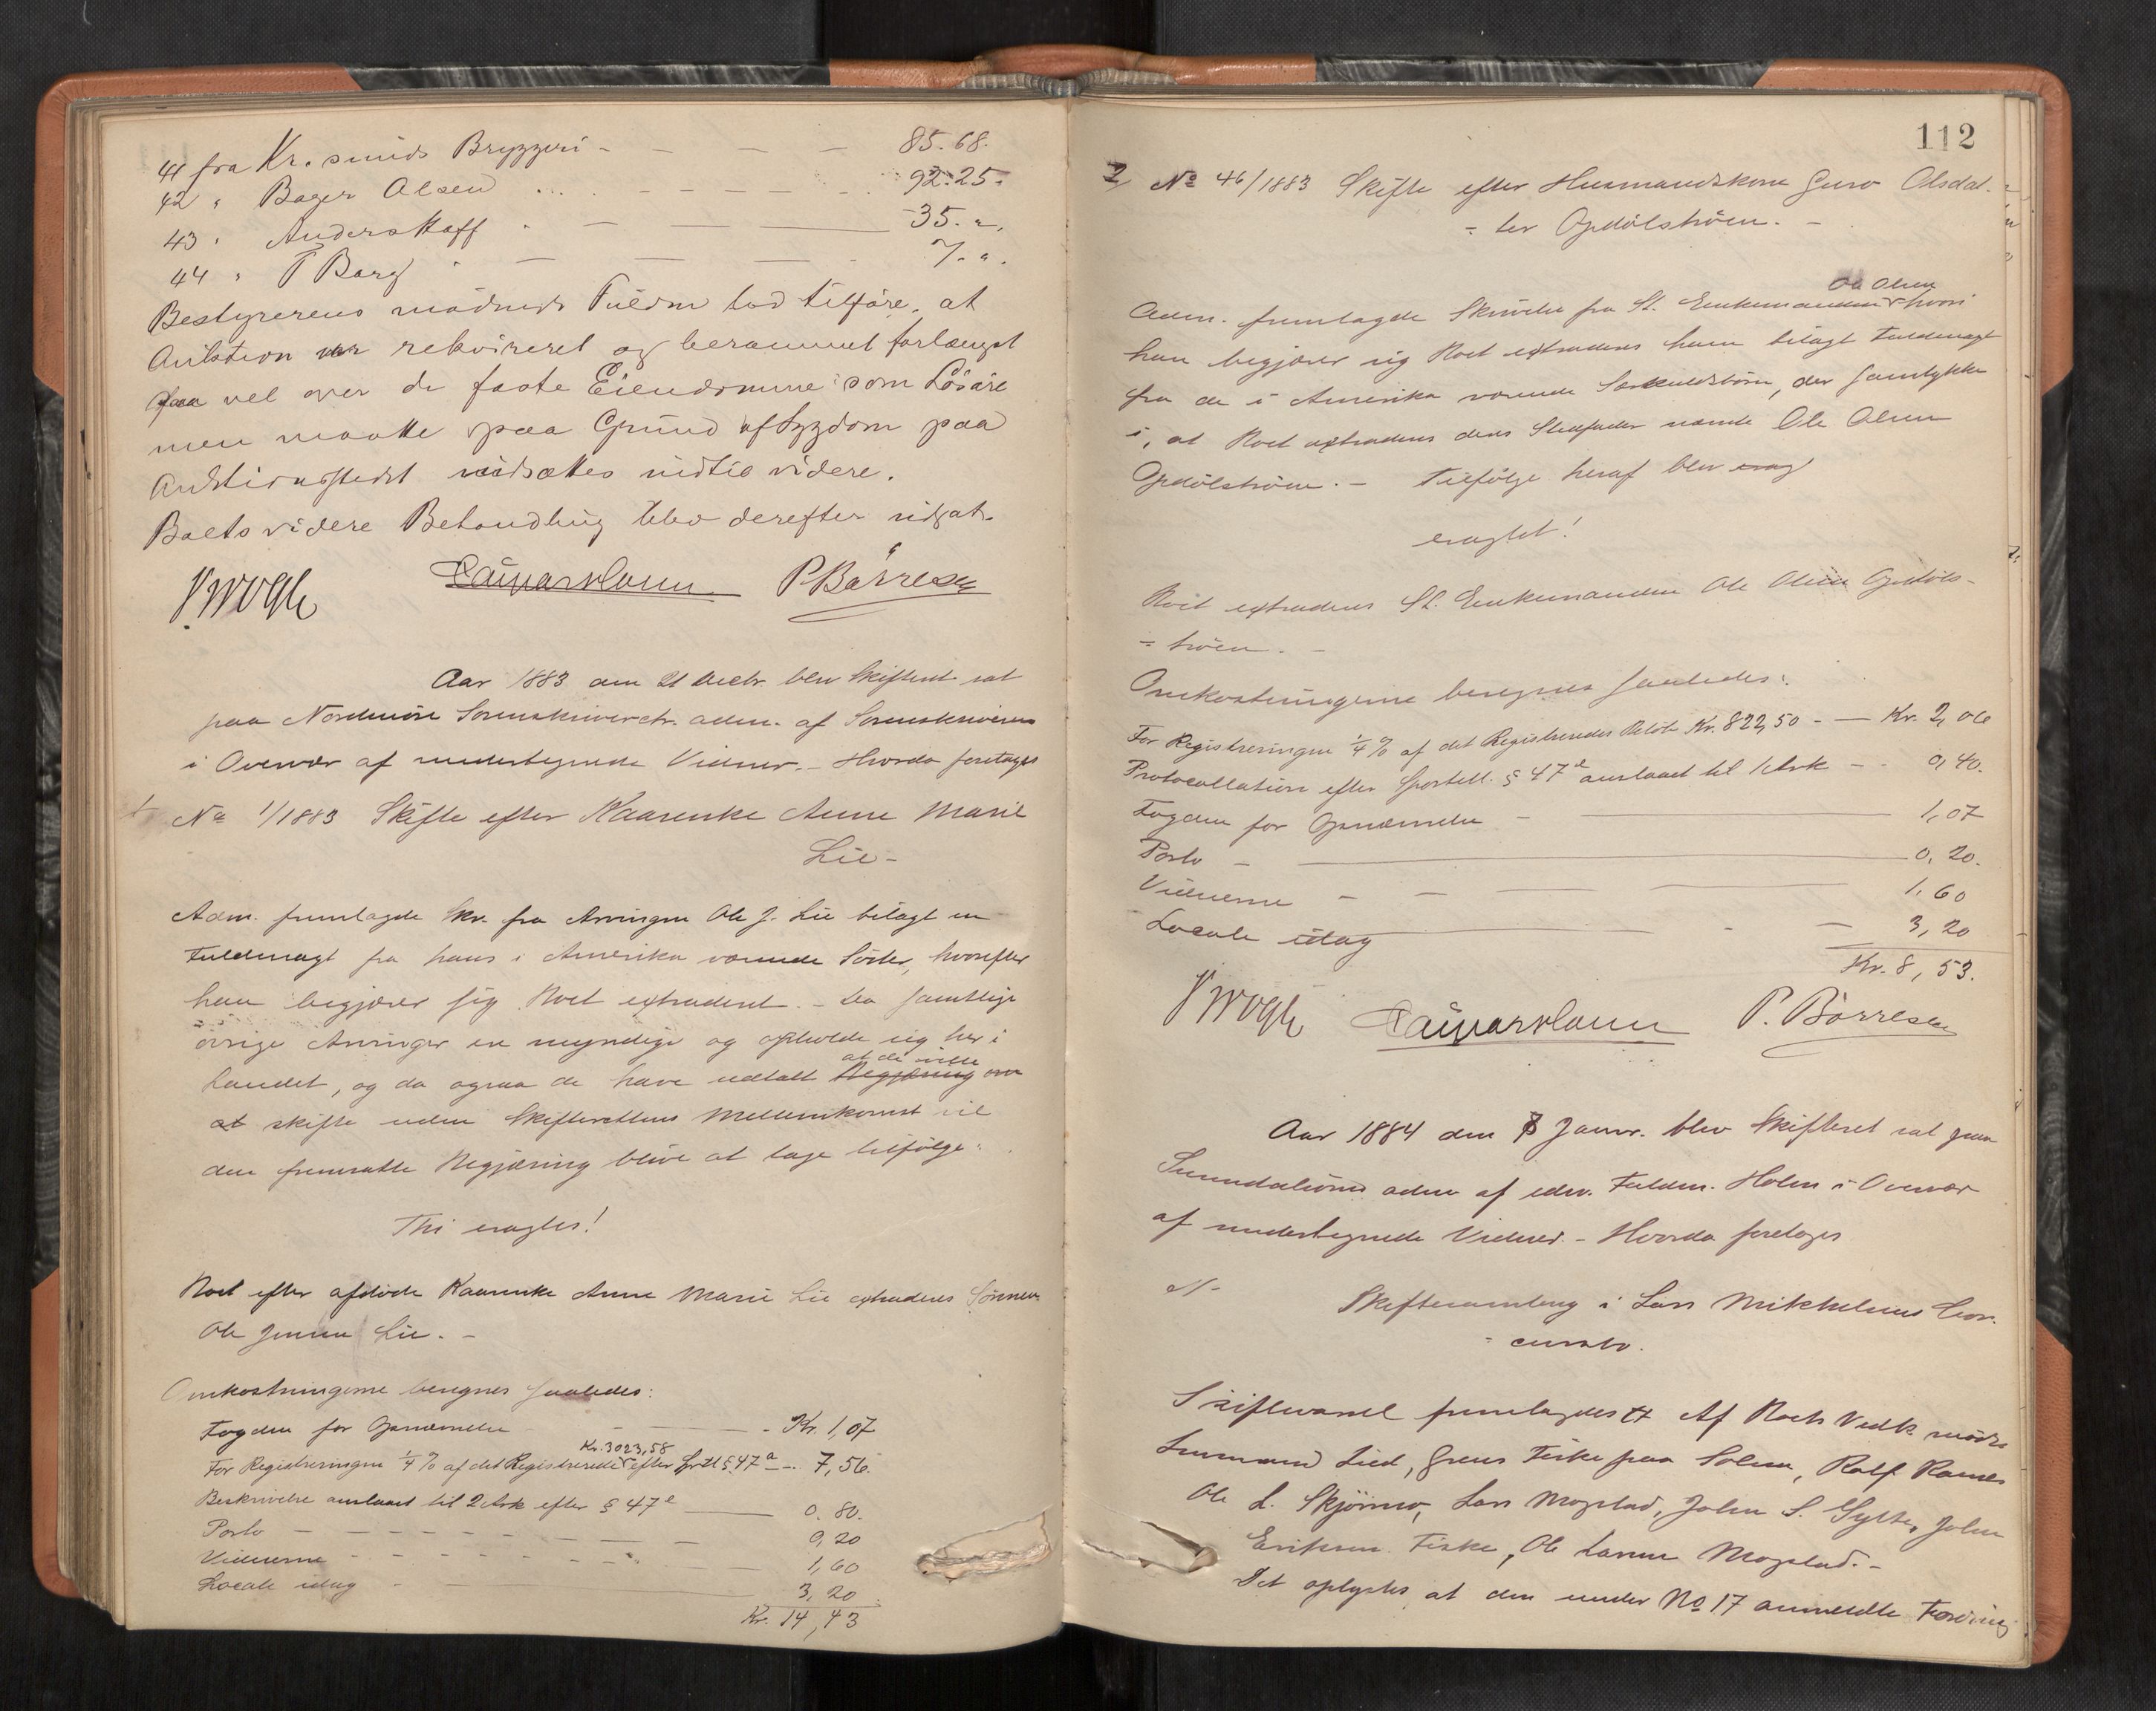 41 fra Kr.sunds Bryggeri - - - - 85.68.
42 " Bager Olsen ... - - - - 92.25.
43 " Anders Haff - - - 35."
44 " T Barg - - - - 7.".
Bestyrerens mødende Fuldm lod tilføre, at
Auktion var rekvireret og berammet forlængst
saa vel over de faste Eiendomme som Løsøre
men maatte paa Grund af Sygdom paa
Auktionsstedet udsættes indtil videre.
Boets videre Behandling blev derefter udsat.
P. Børresen
Aar 1883 den 21 Decbr. blev Skifteret sat
paa Nordmøre Sorenskriverctr. adm. af Sorenskriveren
i Overvær af undertegnede Vidner. - Hvorda foretages
No 1/1883 Skifte efter Kaarenke Anne Marie
Lie -
Adm. fremlagde Skr. fra Arvingen Ole J. Lie bilagt en
Fuldmagt fra hans i Amerika værende Søster, hvorefter
han begjærer sig Boet extraderet. - Da samtlige
øvrige Arvinger er myndige og opholde sig her i
at de ville
Landet, og da ogsaa de have udtalt Begjæring om
at skifte uden Skifterettens Mellemkomst vil
den fremsatte Begjæring blive at tage tilfølge.
Thi eragtes!
Boet efter afdøde Kaarenke Anne Marie Lie extraderes Sønnen
Ole Jensen Lie. -
Omkostningerne beregnes saaledes:
Fogden for Opnævnelse - - Kr. 1,07
Kr. 3023,58
For Registreringen 1/4 % af det Registrerede efter Sprtl § 47 a - 7,56.
Beskrivelse anslaaet til 2 Ark efter § 47 e - 0,80.
Porto - - - - - - - - 0,20
Vidnerne - - - - - - - 1,60
Locale idag - - 3,20
Kr. 14,43
112
2, No 46/1883 Skifte efter Husmandskone Guro Olsdat-
= ter Opdølstrøen. -
Ole Olsen
Adm. fremlagde Skrivelse fra St. Enkemanden hvori
han begjærer sig Boet extraderes ham bilagt Fuldmagt
fra de i Amerika værende Særkuldsbørn, der samtykke
i, at Boet extraderes deres Stedfader nævnte Ole Olsen
Opdølstrøen. - Tilfølge heraf blev erag
eragtet!
Boet extraderes St. Enkemanden Ole Olsen Opdøls-
= trøen. -
Omkostningerne beregnes saaledes:
For Registreringen 1/4 % af det Registreredes Beløb Kr. 822,50 - - Kr. 2,06
Protocollation efter Sportell. § 47 e anslaaet til 1 Ark - - 0,40.
Fogden for Opnævnelse - - 1,07
Porto - - 0,20.
Vidnerne - - - - 1,60
Locale idag - - - 3,20
Kr. 8,53.
P. Børresen
Aar 1884 den 8 Januar. blev Skifteret sat paa
Sunndalsøren adm af edsv. Fuldm. Holm i Overvær
af undertegnede Vidner. - Hvorda foretages
N-
Skiftesamling i Lars Mikkelsens Con-
= cursbo.
Skiftevarsel fremlagdes tt Af Boets Vedk. mødte
Lensmand Lied, Grens Fiske paa Solem, Rolf Ramses
Ole L. Skjørmo, Lars Mogstad, John S. Gylte, John
Eriksen Fiske, Ole Larsen Mogstad. -
Det oplystes, at den under No 17 anmeldte Fordring